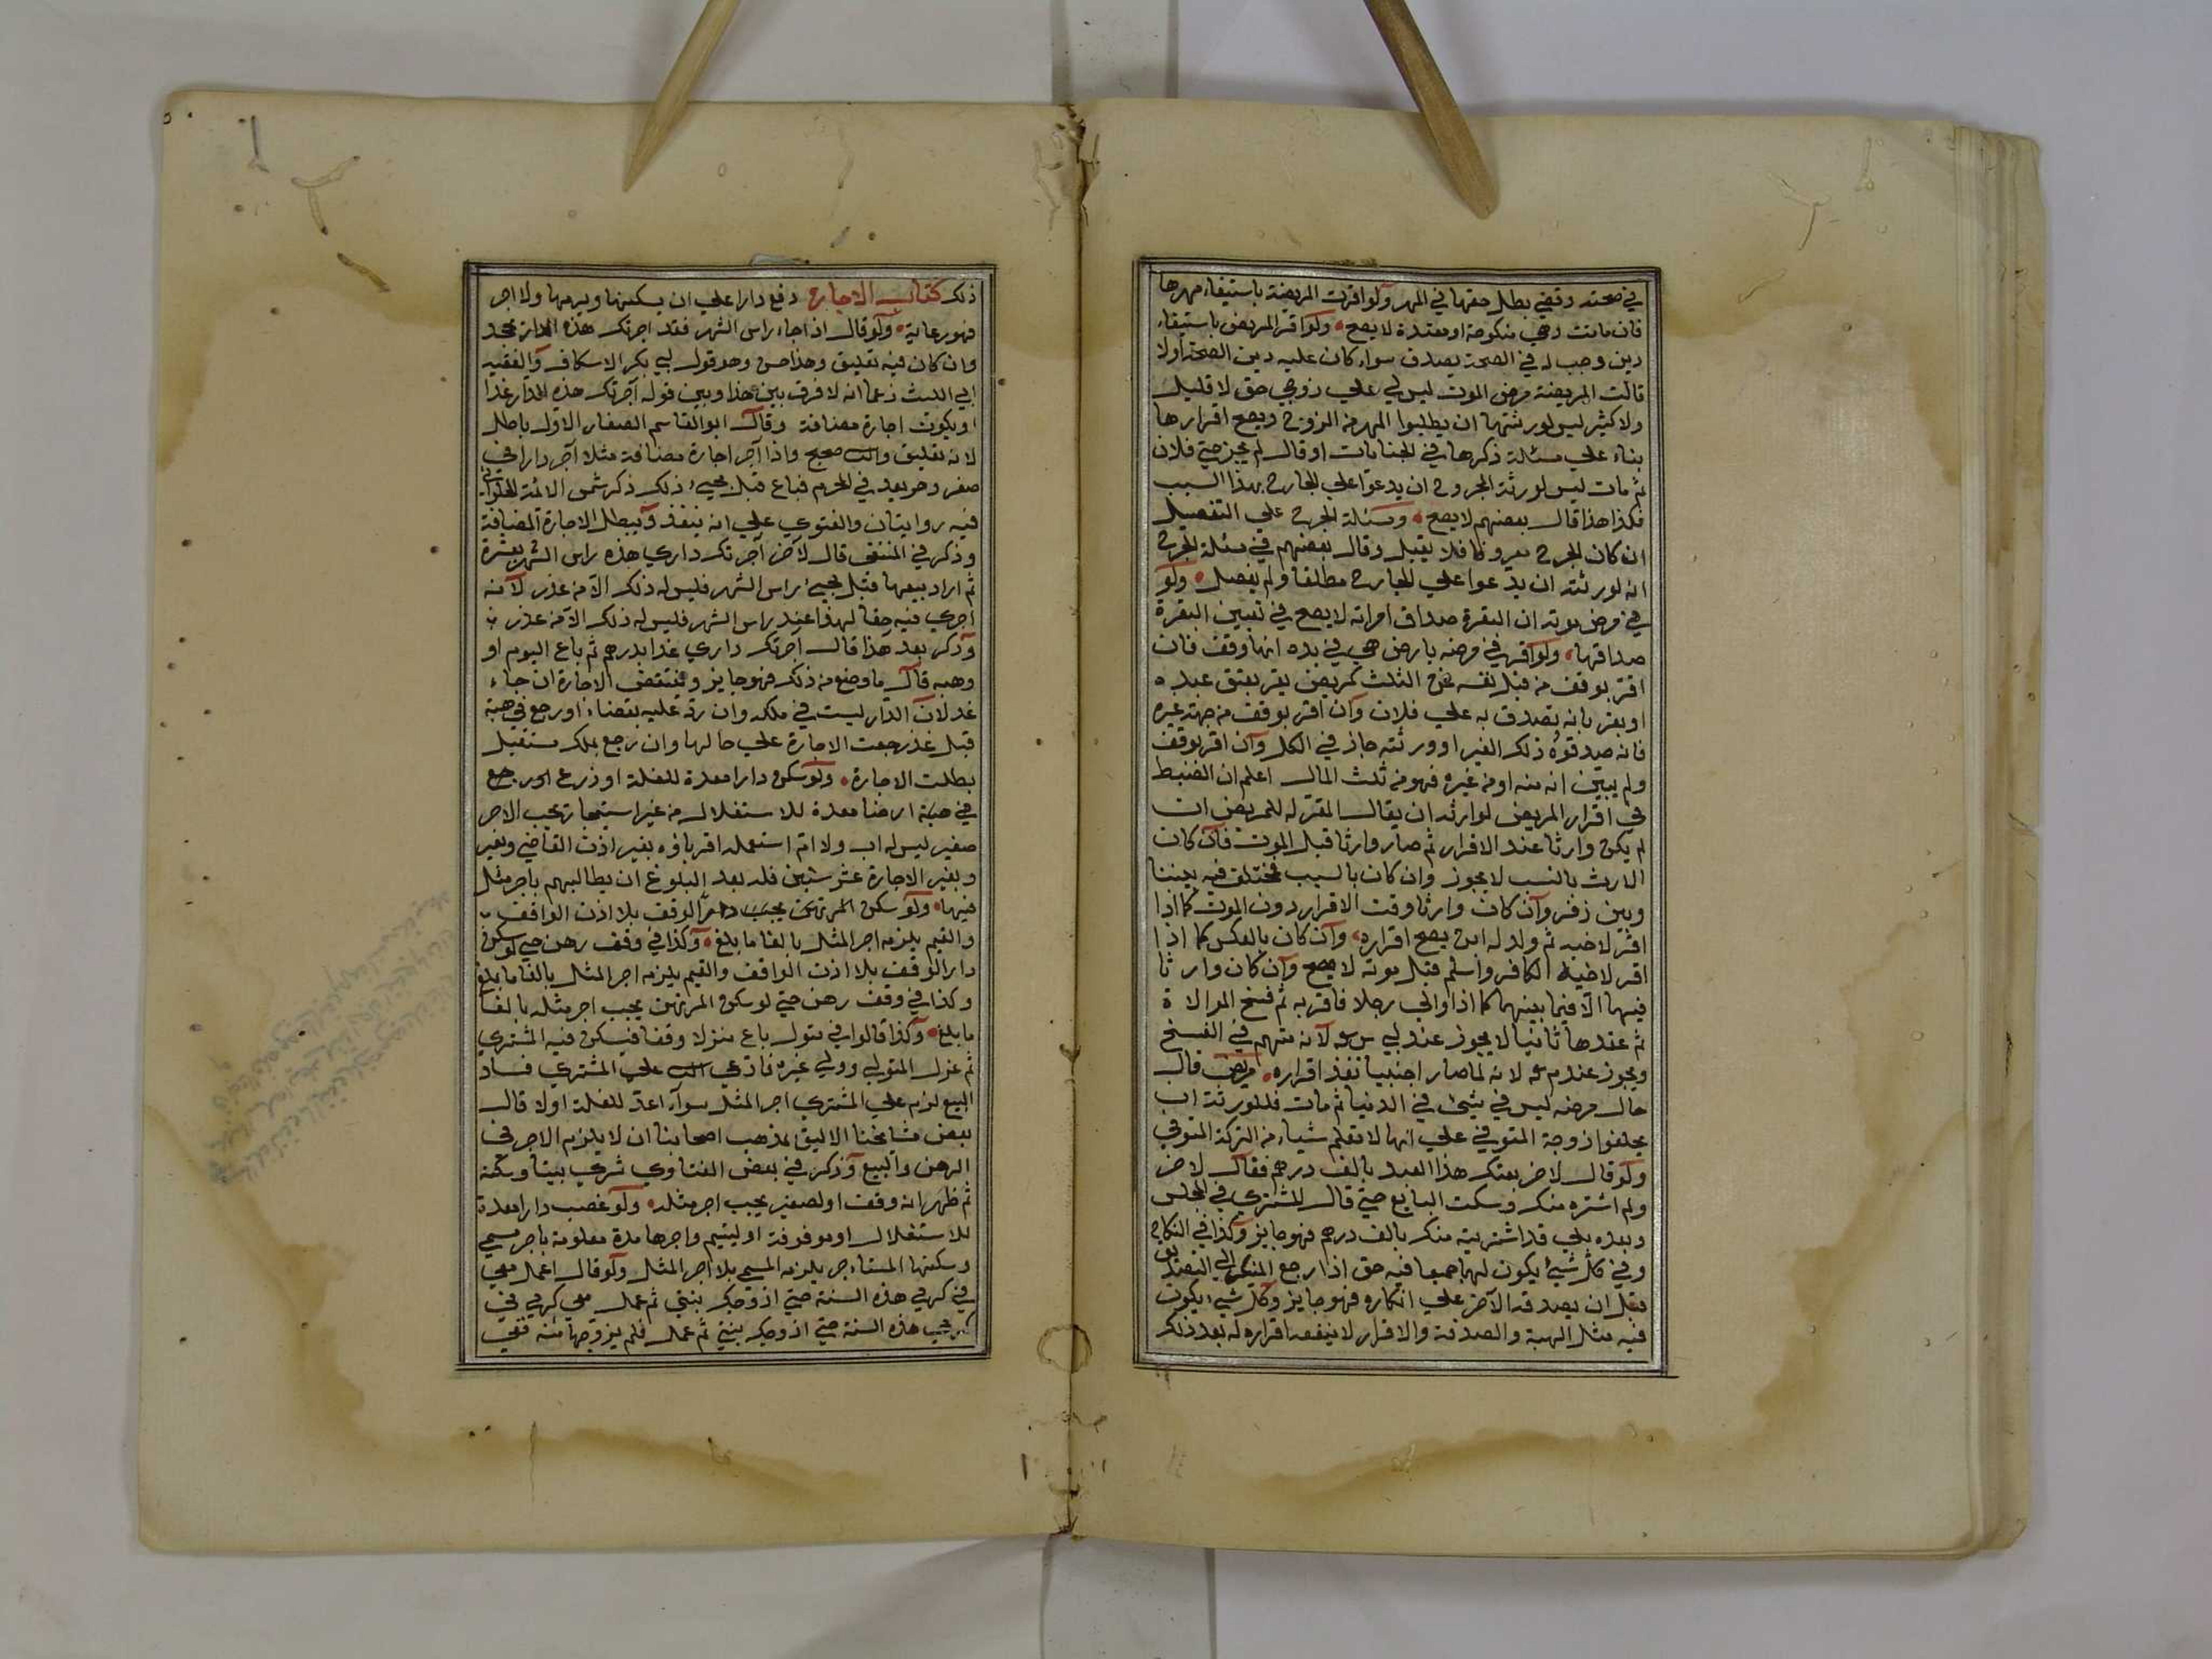 في صحته وقضي بطل حقها في المهر ولو اقرت المريضة باستيفاء مهرها
فان ماتت وهي منكوحة او معتدة لا يصح ولو اقر المريض باستيفاء
دين وجب له في الصحة يصدق سواء كان عليه دين الصحة اولا
قالت المريضة مرض الموت ليس لي علي زوجي حق لا قليل
ولا كثير ليس لورثتها ان يطلبوا المهر من الزوج ويصح اقرارها
بناء علي مسئلة ذكرها في الجنايات او قال لم يجرحني فلان
ثم مات ليس لورثة المجروح ان يدعوا علي الجارح بهذا السبب
فكذا هذا قال بعضهم لا يصح ومسئلة الجرح علي التفصيل
ان كان الجرح معروفا فلا يقبل وقال بعضهم في مسئلة الجرح
انه لورثته ان يدعوا علي الجارح مطلقا ولم يفصل ولو
في مرض موته ان البقرة صداق امراته لا يصح في تعيين البقرة
صداقها ولو اقر في مرضه بارض هي في يده انها وقف فان
اقر بوقف من قبل نفسه فمن الثلث كمريض يقر بعتق عبده
او يقر بانه تصدق به علي فلان وان اقر بوقف من جهة غيره
فانه صدقوه ذلك الغير او ورثته جاز في الكل وان اقر بوقف
ولم يبين انه منه او من غيره فهو من ثلث المال اعلم ان الضبط
في اقرار المريض لوارثه ان يقال المقر له للمريض ان
لم يكن وارثا عند الاقرار ثم صار وارثا قبل الموت فان كان
الارث بالنسب لا يجوز وان كان بالسبب فمختلف فيه بيننا
وبين زفر وان كان وارثا وقت الاقرار دون الموت كما اذا
اقر لاخيه ثم ولد له ابن يصح اقراره وان كان بالعكس كما اذا
اقر لاخيه الكافر واسلم قبل موته لا يصح وان كان وارثا
فيهما الا فيما بينهما كما اذا والي رجلا فاقر به ثم فسخ الموالاة
ثم عقدها ثانيا لا يجوز عند ابي س لانه متهم في الفسخ
ويجوز عند م لانه لما صار اجنبيا نفذ اقراره مريض قال
حال مرضه ليس في شيئ في الدنيا ثم مات فللورثة ان
يحلفوا زوجة المتوفي علي انها لا تعلم شياء من التركة المتوفي
ولو قال لاخر بعتك هذا العبد بالف درهم فقال لاخر
ولم اشتره منك وسكت البايع حتي قال المشتري في المجلس
وبعده بلي قد اشتريته منك بالف درهم فهو جايز وكذا في النكاح
وفي كل شيئ يكون لهما جميعا فيه حق اذا رجع المنكر الي التصديق
قبل ان يصدقه الآخر علي انكاره فهو جايز وكل شيئ يكون
فيه مثل الهبة والصدقة والاقرار لا ينفعه اقراره له بعد ذلك
ذلك كتاب الاجارة دفع دارا علي ان يسكنها ويرمها ولا اجر
فهو عارية ولو قال اذا جاء راس الشهر فقد اجرتك هذه الدار يجوز
وان كان فيه تعليق وهذا حسن وهو قول ابي بكر الاسكاف والفقيه
ابي الليث زعما انه لا فرق بين هذا وبين قوله آجرتك هذه الدار غدا
او يكون اجارة مضافة وقال ابو القاسم الصفار الاول باطل
لانه تعليق والثاني صحيح واذا آجر اجارة مضافة مثلا آجر دارا في
صفر وهو بعد في المحرم فباع قبل مجيئ ذلك ذكر شمس الائمة الحلواني
فيه روايتان والفتوي علي انه ينفذ ويبطل الاجارة المضافة
وذكر في المنتقي قال لآخر آجرتك داري هذه راس الشهر بعشرة
ثم اراد بيعها قبل مجيئ راس الشهر فليس له ذلك الا من عذر لانه
اجري فيه حقا لهذا عند راس الشهر فليس له ذلك الا من عذر
وذكر بعد هذا قال آجرتك داري غدا بدرهم ثم باع اليوم او
وهبه قال ما وضع من ذلك فهو جايز وينتقض الاجارة ان جاء
غد لان الدار ليست في ملكه وان رد عليه بقضاء او رجع في هبة
قبل غد رجعت الاجارة علي حالها وان رجع بملك مستقبل
بطلت الاجارة ولو سكن دارا معدة للغلة او زرع
في ارضا معدة للاستغلال من غير استيجار تجب الاجر
صغير ليس له اب ولا ام استعمله اقرباؤه بغير اذن القاضي وبغير
وبغير الاجارة عشر سنين فله بعد البلوغ ان يطالبهم باجر مثل
فيها ولو سكن المرتهن يجب دار الوقف بلا اذن الواقف
والقيم يلزمه اجر المثل بالغا ما بلغ وكذا في وقف رهن حتي لو سكن
دار الوقف بلا اذن الواقف والقيم يلزمه اجر المثل بالغا ما بلغ
وكذا في وقف رهن حتي لو سكن المرتهن يجب اجر مثله بالغا
ما بلغ وكذا قالوا في متول باع منزلا وقفا فيسكن فيه المشتري
ثم عزل المتولي وولي غيره فادعي الثاني علي المشتري فساد
البيع لزم علي المشتري اجر المثل سوآء اعد للغلة اولا قال
بعض مشايخنا الاليق بمذهب اصحابنا ان لا يلزم الاجر في
الرهن والبيع وذكر في بعض الفتاوي شري بيتا وسكنه
ثم ظهر انه وقف او لصغير يجب اجر مثله ولو غصب دارا معدة
للاستغلال او موقوفة او ليتيم واجرها مدة معلومة باجر مسمي
وسكنها المستاجر يلزمه المسمي بلا اجر المثل ولو قال اعمل معي
في كرمي هذه السنة حتي ازوجك بنتي ثم عمل معي كرمي في
كرمي هذه السنة حتي ازوجك بنتي ثم عمل فلم يزوجها منه ففي